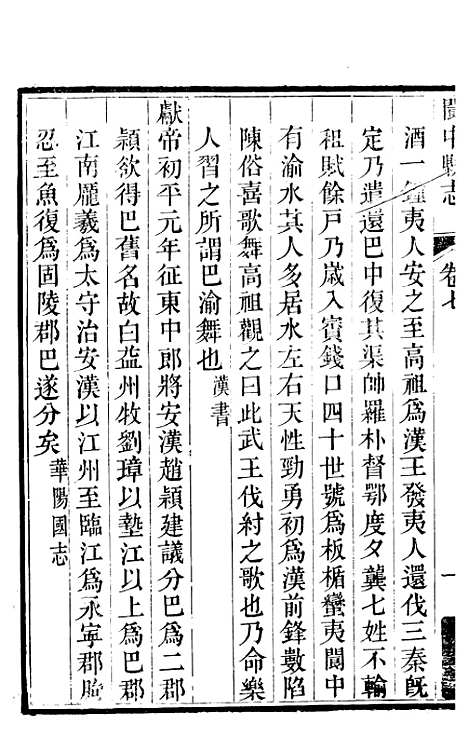 閬中縣志
卷七
一
酒一鍾夷人安之至高祖爲漢王發夷人還伐三秦旣
定乃遣還巴中復其渠帥羅朴督鄂度夕龔七姓不輸
租賦餘戶乃歲入賨錢口四十世號爲板楯蠻夷閬中
有渝水其人多居水左右天性勁勇初爲漢前鋒數陷
陳俗喜歌舞高祖觀之曰此武王伐紂之歌也乃命樂
人習之所謂巴渝舞也漢書
獻帝初平元年征東中郎將安漢趙穎建議分巴爲二郡
穎欲得巴舊名故白益州牧劉璋以墊江以上爲巴郡
江南龐羲爲太守治安漢以江州至臨江爲永寧郡朐
忍至魚復爲固陵郡巴遂分矣華陽國志